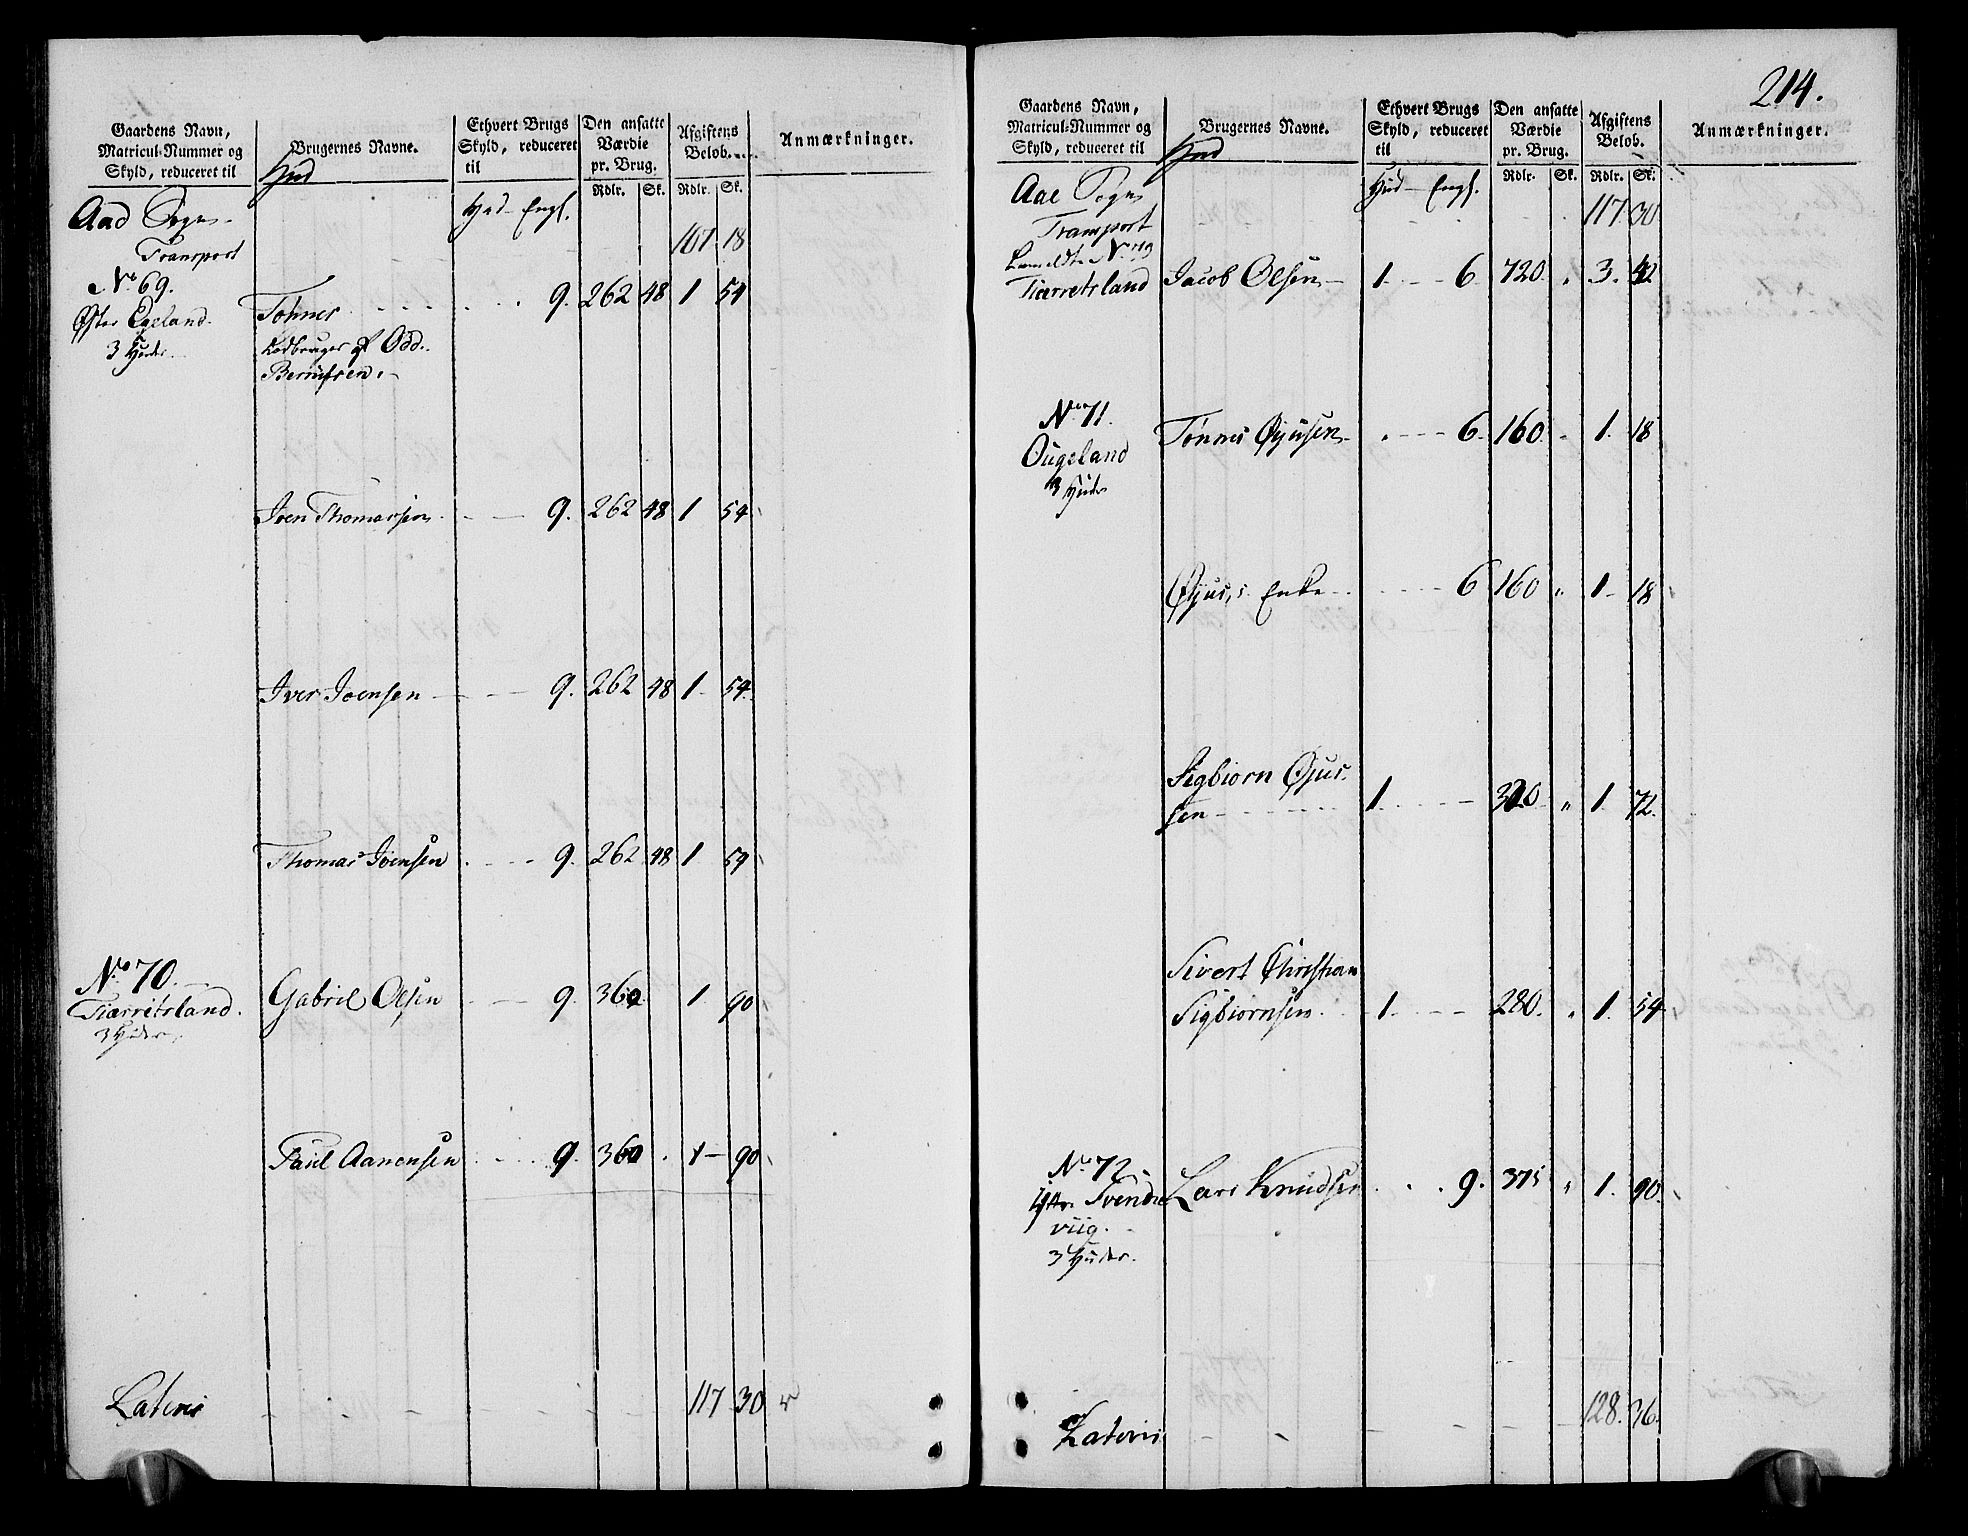 Gaardens Navn,
Matricul-Nummer og
Skyld, reduceret til
Hud
Brugernes Navne.
Ethvert Brugs
Skyld, reduceret
til
Hud Engl.
Den ansatte
Værdie
pr. Brug.
Rdlr. Sk.
Afgiftens
Beløb.
Rdlr. Sk.
Anmærkninger.
Aad Sogn
Transport 107 18
No 69. Tønnes 9. 262 48 1 54
Øster Egeland.
3 Huder Lodbruger af Odd
Berntsen.
Joen Thomassen 9. 262 48 1 54
Iver Joensen 9. 262 48 1 54
Thomas Joensen 9. 262 48 1 54
No 70. Gabriel Olsen 9 360 1 90
Tiærretsland.
3 Huder
Paul Aanensen 9. 360 1 90
Lateris 117 30
214.
Gaardens Navn,
Matricul-Nummer og
Skyld, reduceret til
Hud
Brugernes Navne.
Ethvert Brugs
Skyld, reduceret
til
Hud Engl.
Den ansatte
Værdie
pr. Brug.
Rdlr. Sk.
Afgiftens
Beløb.
Rdlr. Sk.
Anmærkninger.
Aae Sogn
Transport 117 30
Tiærretsland Jacob Olsen 1 6 720 " 3. 42
No 71. Tønnes Øjusen 6. 160 1. 18
Ougeland
3 Huder
Øjus,s Enke 6 160 " 1 18
Sigbiørn Øjus-
sen 1 320 " 1 72.
Sivert Christian
Sigbiørnsen 1. 280. " 1. 54
No 72. Lars Knudsen 9. 375 " 1. 90.
Svendse
viig.
3 Huder.
Lateris 128. 36.